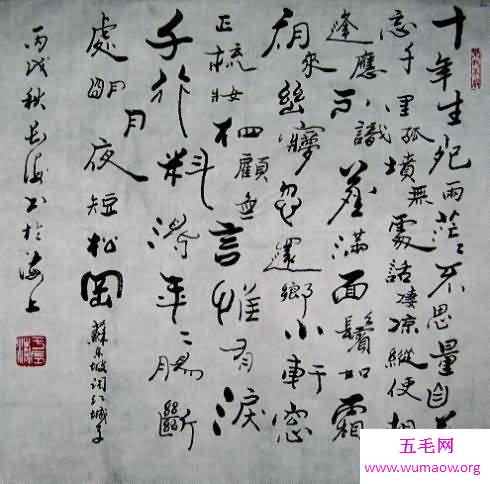 十年生死兩茫茫不思量自難
忘千里孤墳無處話淒涼縱使相
逢應不識塵滿面鬢如霜
夜來幽夢忽還鄉小軒窗
正梳妝相顧無言惟有淚
千行料得年年腸斷
處明月夜短松岡 蘇東坡詞江城子
丙戌秋長海書於海上
五毛网
www.wumaow.org